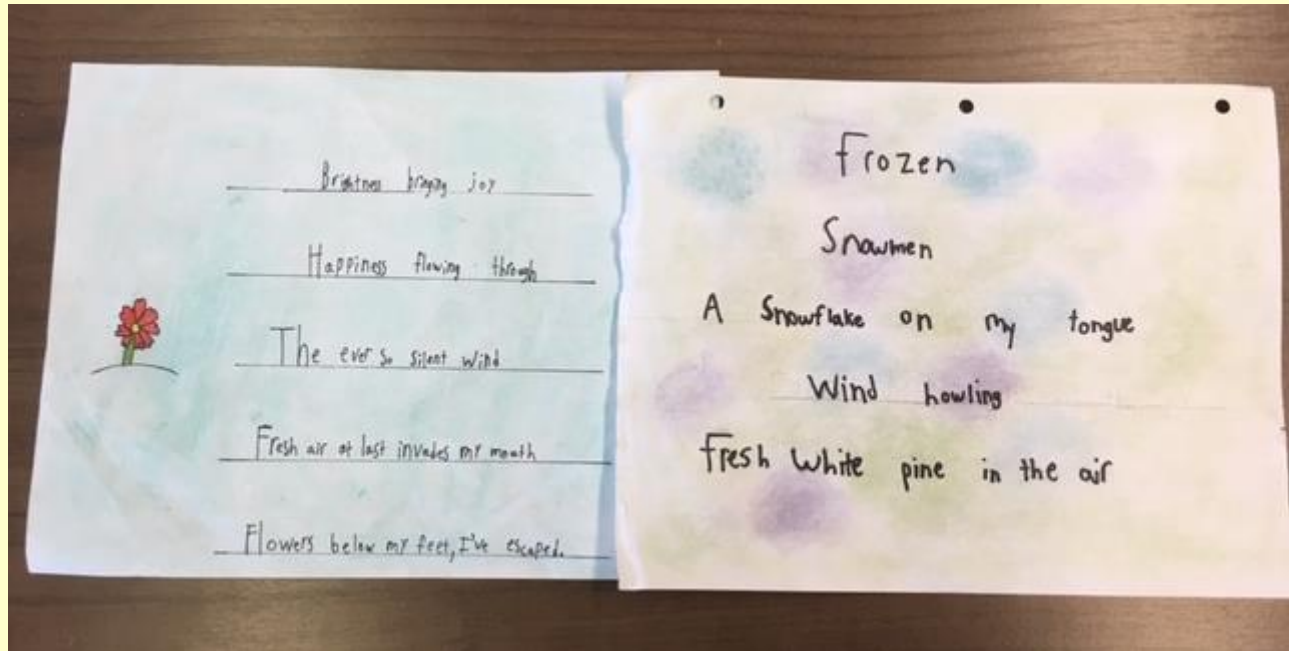 Brightness bringing joy
Happiness flowing through
The ever so silent wind
Fresh air at last invades my mouth
Flowers below my feet, I've escaped.
Frozen
Snowmen
A Snowflake on my tongue
Wind howling
Fresh White pine in the air